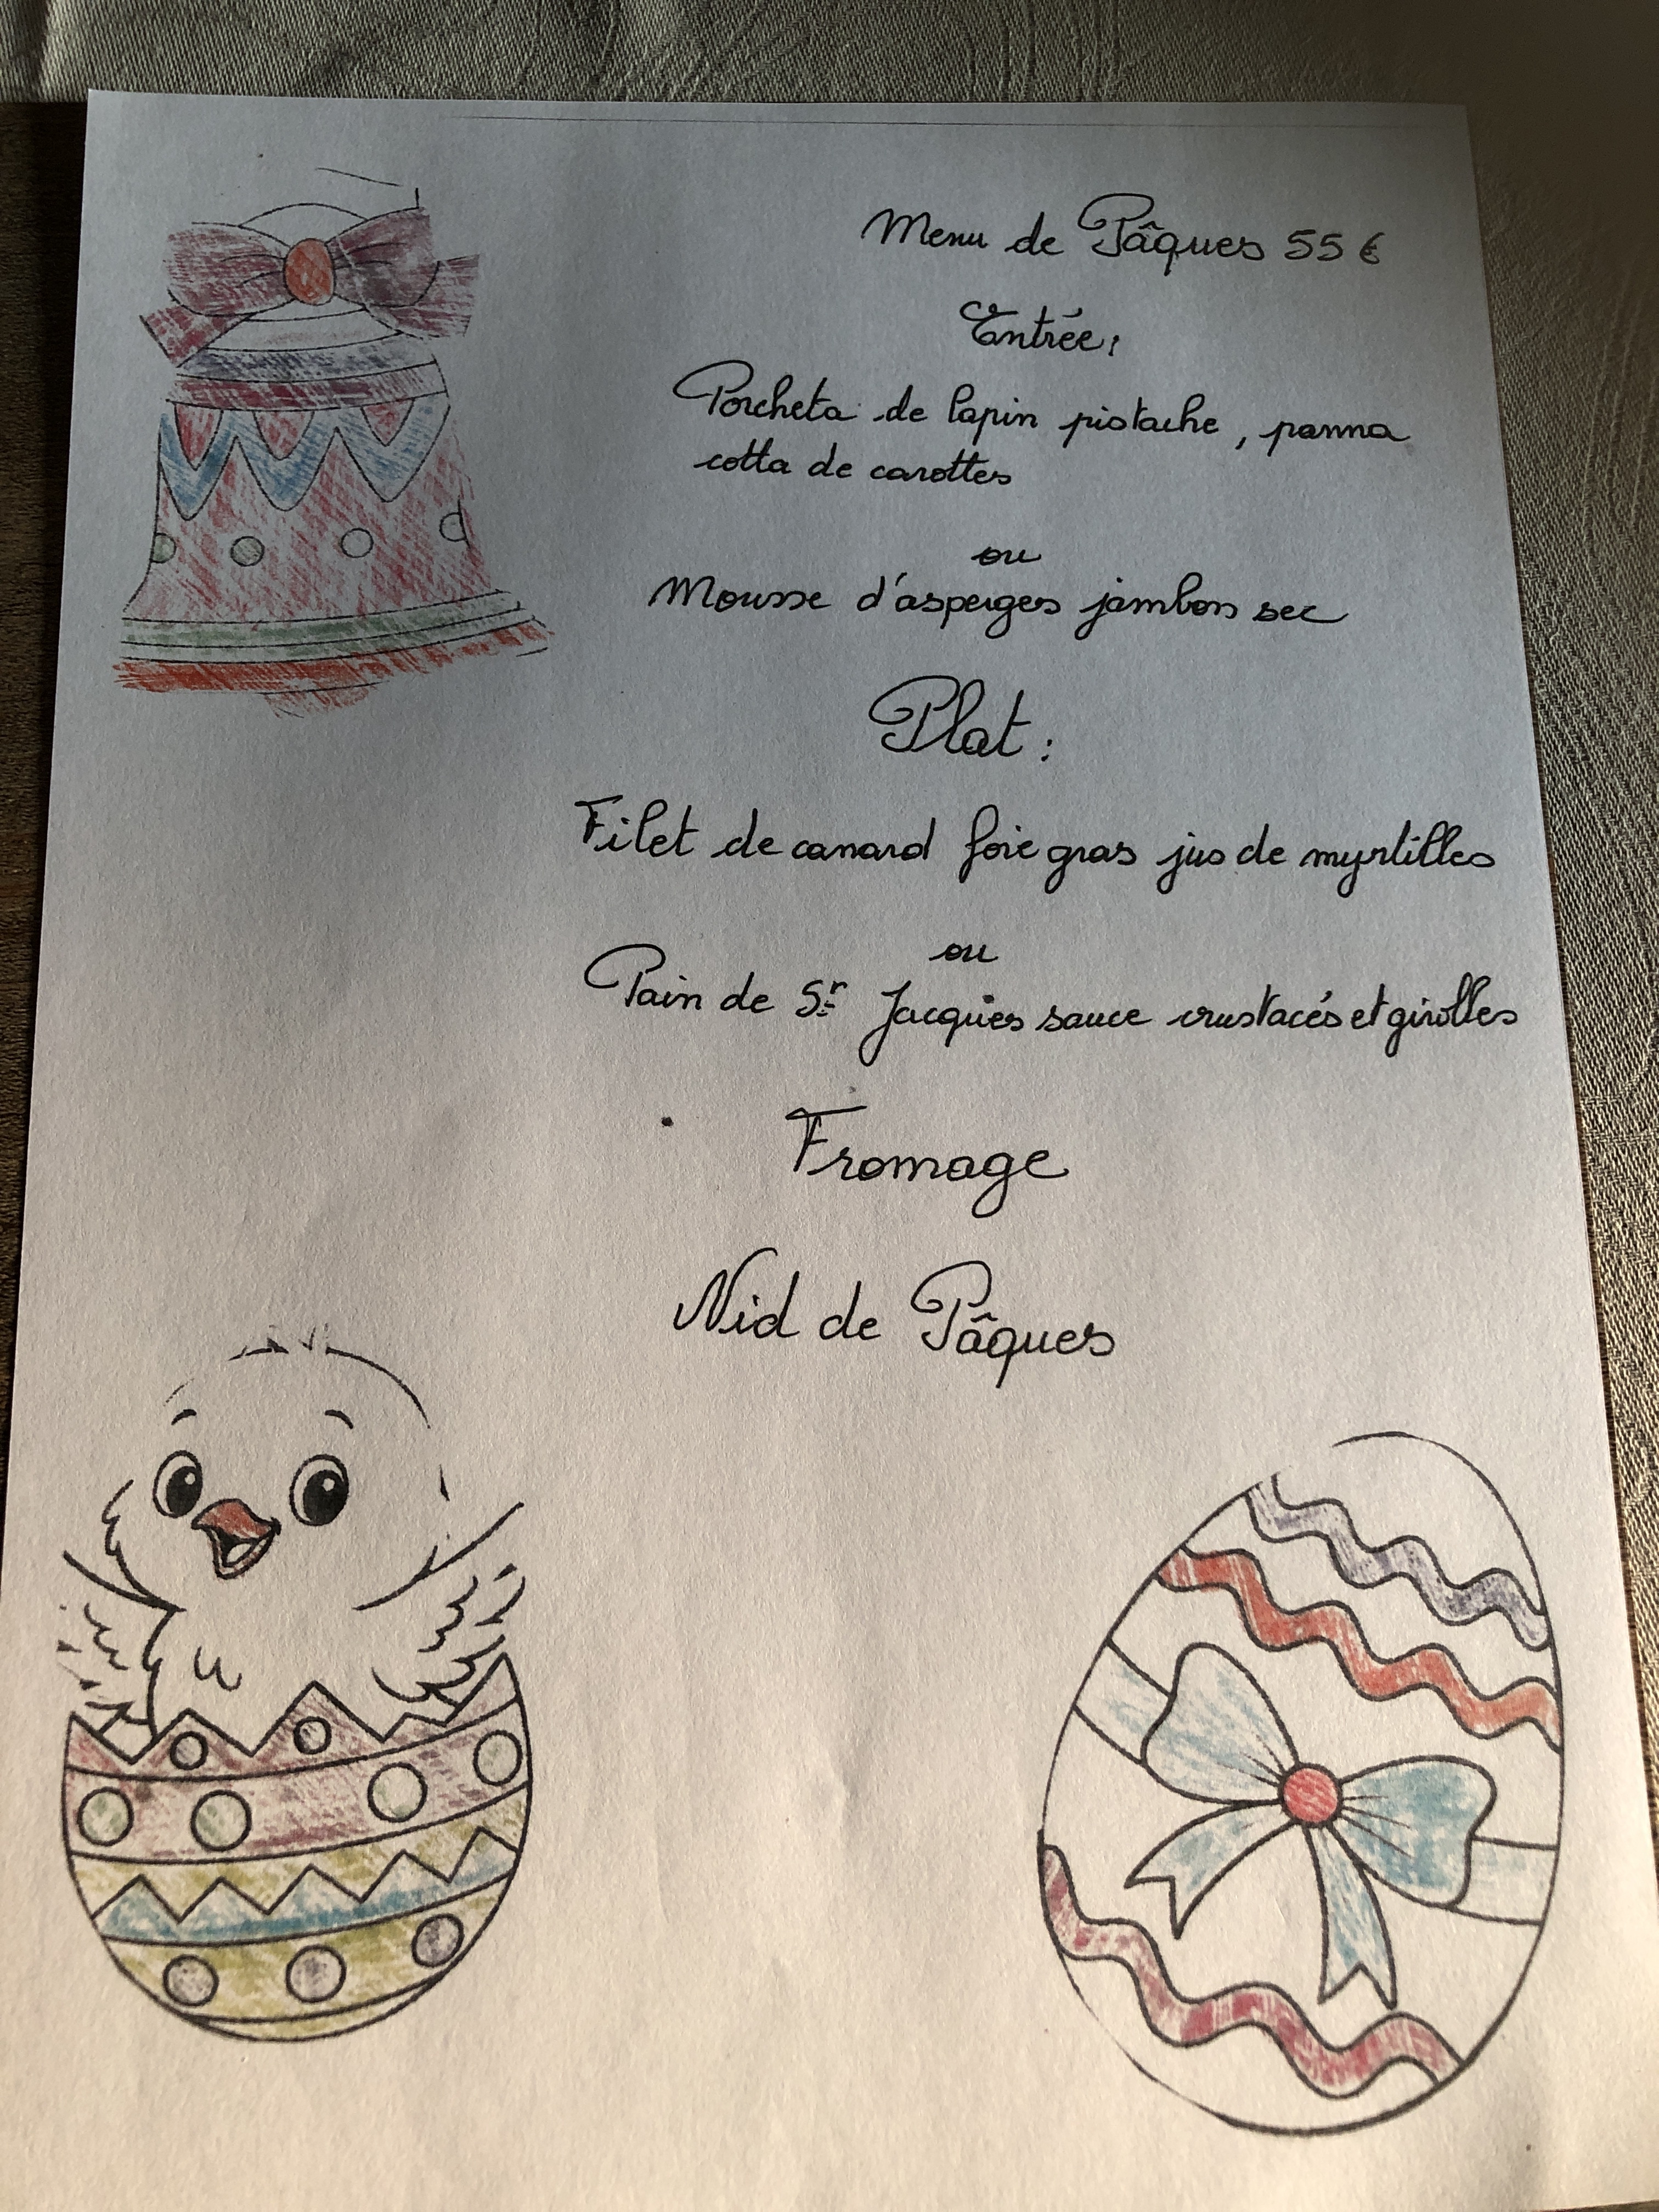 Menu de Pâques 55 €
Entrée :
Porcheta de lapin pistache, panna
cotta de carottes
ou
Mousse d'asperges jambon sec
Plat :
Filet de canard foie gras jus de myrtilles
ou
Pain de St Jacques sauce crustacés et girolles
Fromage
Nid de Pâques